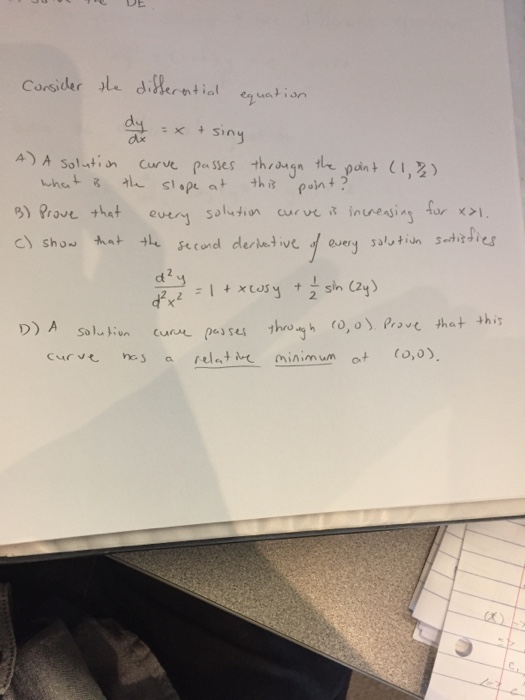 the DE
Consider the differential equation
dy/dx = x + siny
A) A solution curve passes through the point (1, π/2)
what is the slope at this point?
B) Prove that every solution curve is increasing for x>1.
C) show that the second derivative of every solution satisfies
d²y/d²x² = 1 + xcosy + 1/2 sin(2y)
D) A solution curve passes through (0,0). Prove that this
curve has a relative minimum at (0,0).
(x)